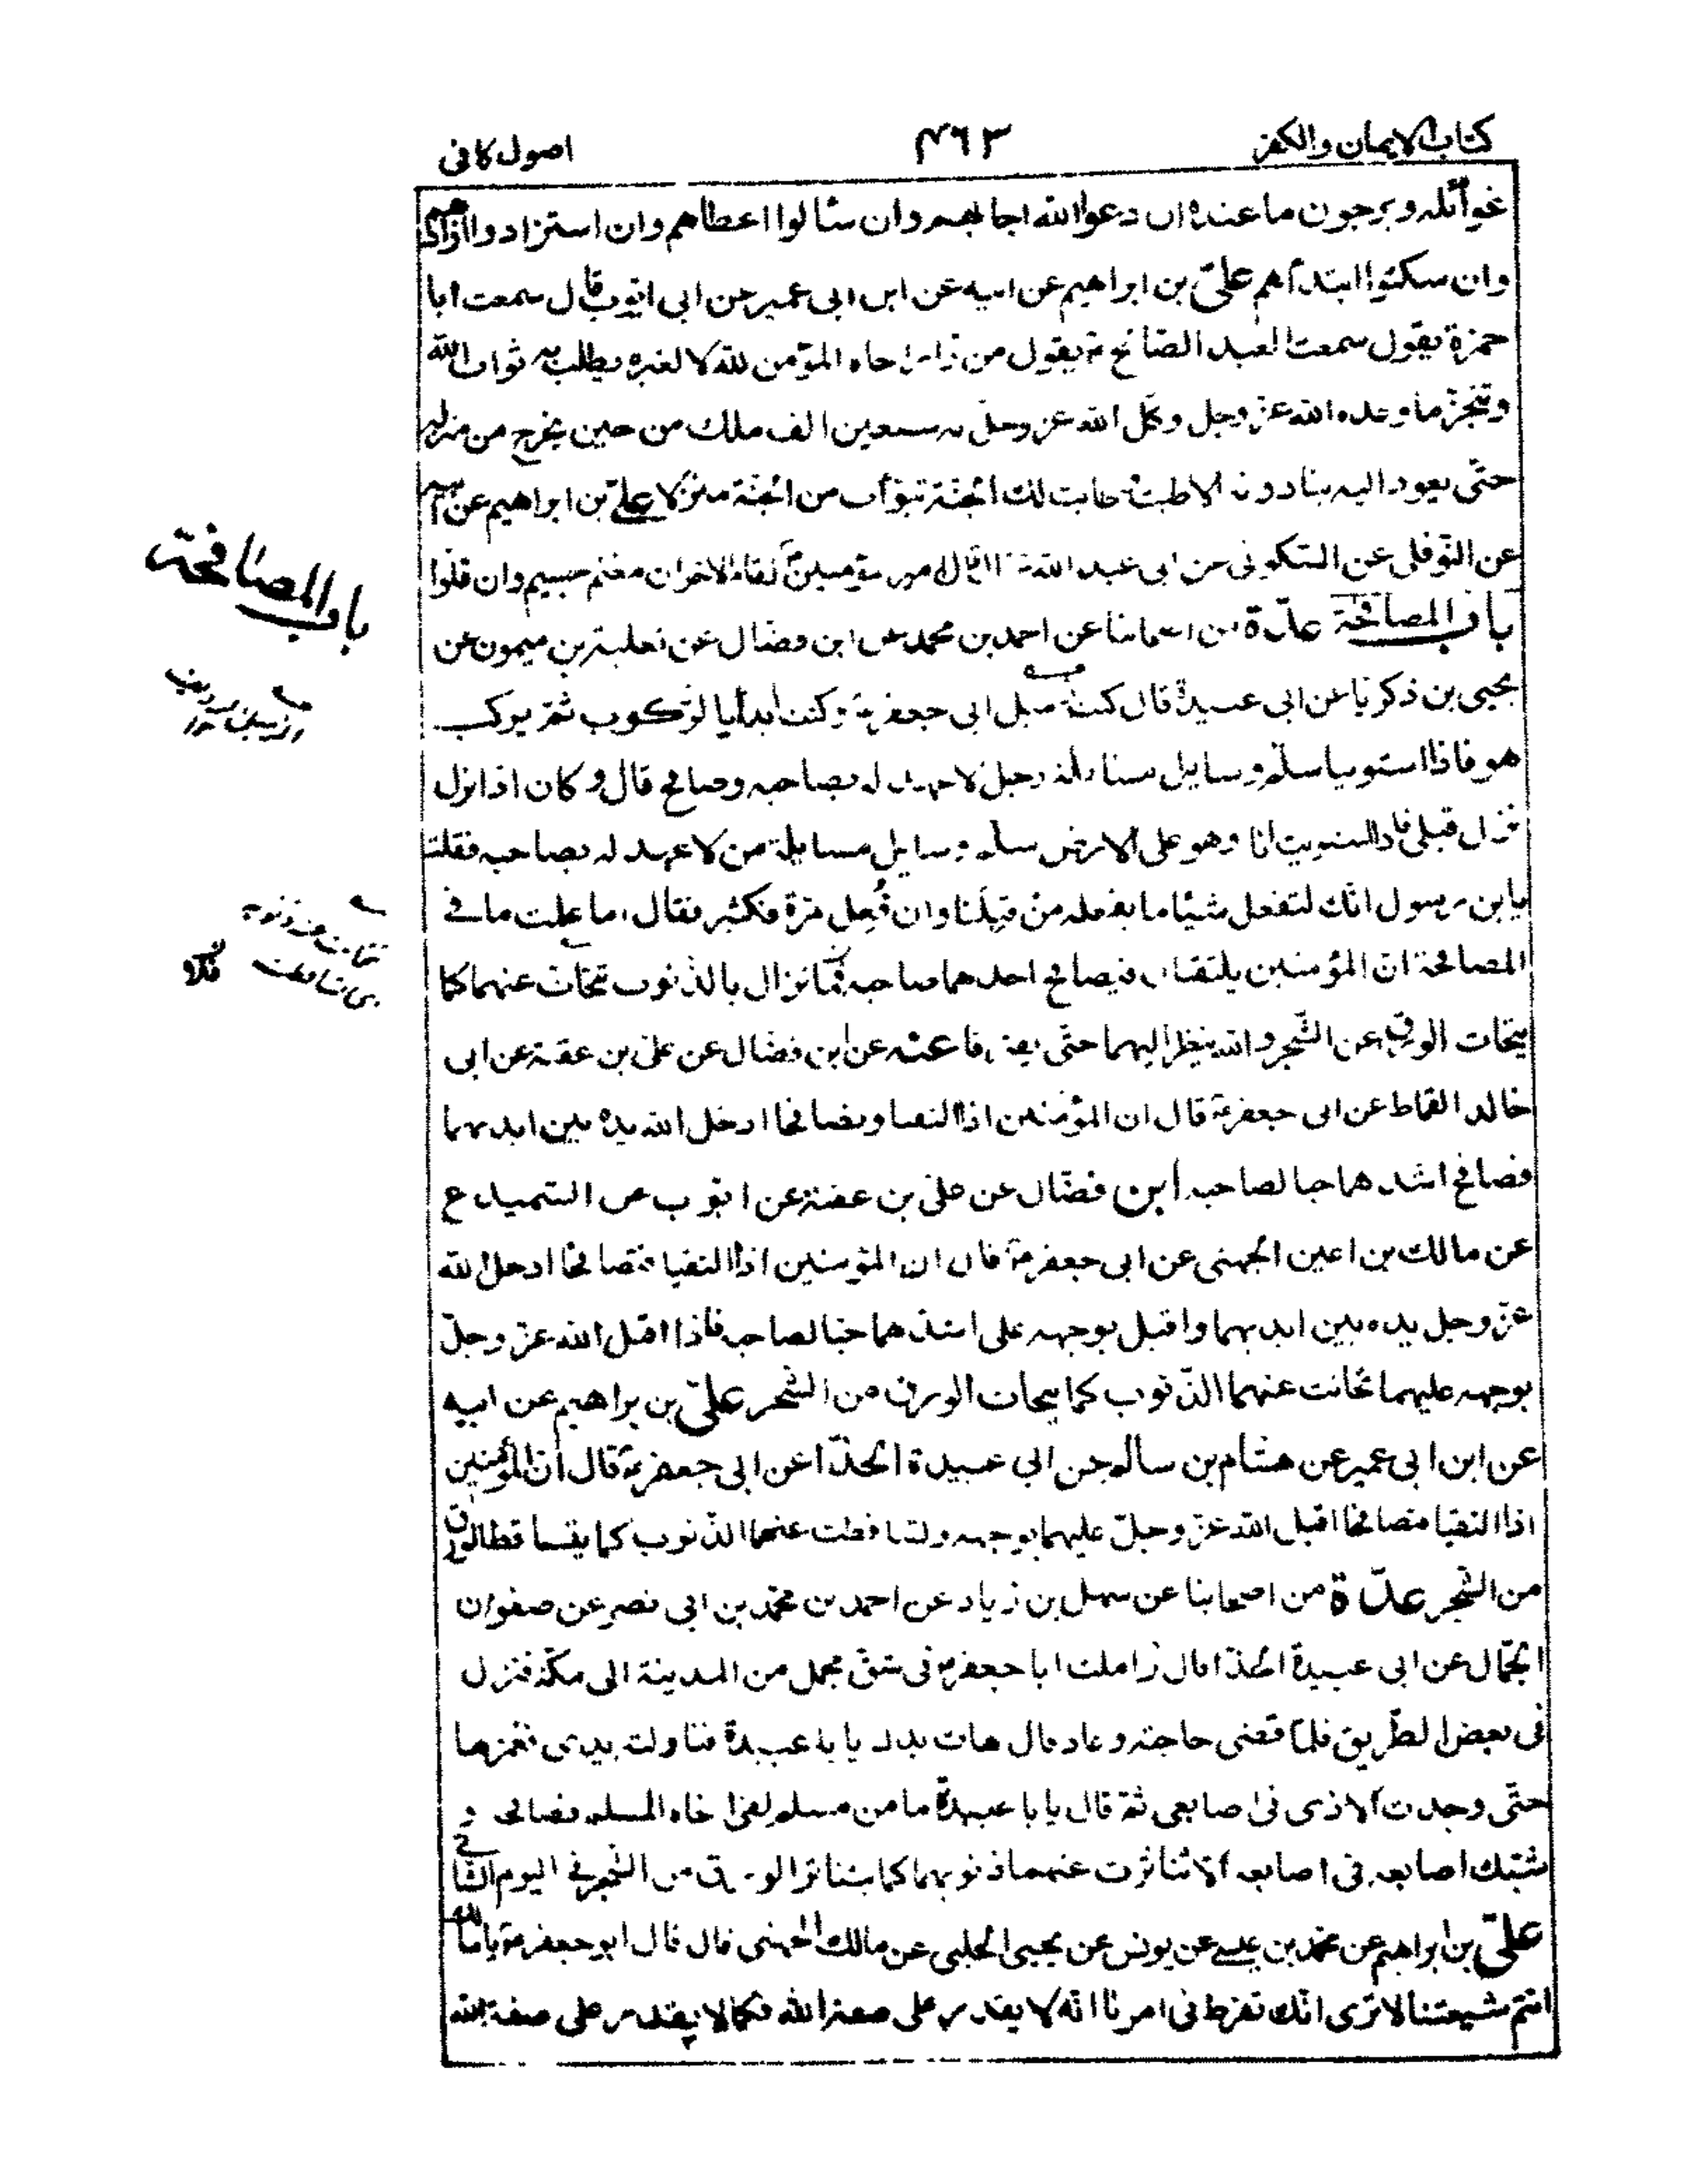 كتاب الايمان والكفر
٤٦٣
اصول كافى
غوائله ويرجون ما عنده ان دعوا الله اجابهم وان سئالوا اعطاهم وان استزادوا زادهم
وان سكتوا ابتدأهم علىّ بن ابراهيم عن ابيه عن ابن ابى عمير عن ابى ايّوب قال سمعت ابا
حمزة يقول سمعت العبد الصّالح ع يقول من زار اخاه المؤمن لله لا لغيره يطلب به ثواب الله
وتنجّز ما وعده الله عزّ وجل وكّل الله عز وجلّ به سبعين الف ملك من حين يخرج من منزله
حتّى يعود اليه ينادونه الا طبت وطابت لك الجنّة تبوّأت من الجنّة منزلا علىّ بن ابراهيم عن ابيه
عن النّوفلى عن السّكونى عن ابى عبد الله ع قال قال امير المؤمنين ع لقاء الاخوان مغنم جسيم وان قلّوا
باب المصافحة عدّة من اصحابنا عن احمد بن محمد عن ابن فضّال عن ثعلبة بن ميمون عن
يحيى بن زكريّا عن ابى عبيدة قال كنت زميل ابى جعفر ع وكنت ابدأ بالرّكوب ثمّ يركب
هو فاذا استوينا سلّم وسايل مسائلة رجل لا عهد له بصاحبه وصافح قال وكان اذا نزل
نزل قبلى فاذا استويت انا وهو على الارض سلّم وسايل مسايلة من لا عهد له بصاحبه فقلت
يا بن رسول انّك لتفعل شيئا ما يفعله من قبلنا وان فُعِل مرّة فكثير فقال اما علمت ما فى
المصافحة انّ المؤمنين يلتقيان فيصافح احدهما صاحبه فما تزال بالذّنوب تتحاتّ عنهما كما
يتحات الورق عن الشّجر والله ينظر اليهما حتّى يفترقا عنه عن ابن فضّال عن علىّ بن عقبة عن ابى
خالد القمّاط عن ابى جعفر ع قال ان المؤمنين اذا التقيا وتصافحا ادخل الله يده بين ايديهما
فصافح اشدهما حبا لصاحبه ابن فضّال عن علىّ بن عقبة عن ايّوب عن السّميدع
عن مالك بن اعين الجهنى عن ابى جعفر ع قال ان المؤمنين اذا التقيا فتصافحا ادخل الله
عزّ وجل يده بين ايديهما واقبل بوجهه على اشدّهما حبّا لصاحبه فاذا اقبل الله عزّ وجلّ
بوجهه عليهما تحاتت عنهما الذّنوب كما يتحات الورق من الشّجر علىّ بن ابراهيم عن ابيه
عن ابن ابى عمير عن هشام بن سالم عن ابى عبيدة الحذّا عن ابى جعفر ع قال انّ المؤمنين
اذا التقيا فتصافحا اقبل الله عزّ وجلّ عليهما بوجهه وتساقطت عنهما الذّنوب كما يتساقط الورق
من الشّجر عدّة من اصحابنا عن سهل بن زياد عن احمد بن محمّد بن ابى نصر عن صفوان
الجمّال عن ابى عبيدة الحذّا قال زاملت ابا جعفر ع فى شقّ محمل من المدينة الى مكّة فنزل
فى بعض الطّريق فلمّا قضى حاجته وعاد قال هات يدك يا با عبيدة فناولته يدى فغمزها
حتّى وجدت الاذى فى اصابعى ثمّ قال يا با عبيدة ما من مسلم لقى اخاه المسلم فصافحه و
شبّك اصابعه فى اصابعه الا تناثرت عنهما ذنوبهما كما يتناثر الورق من الشّجر فى اليوم الشّاتى
علىّ بن ابراهيم عن محمّد بن عيسى عن يونس عن يحيى الحلبى عن مالك الجهنى قال قال ابو جعفر ع يا مالك
انتم شيعتنا لا ترى انّك تفرّط فى امرنا انّه لا يقدر على صفة الله فكما لا يقدر على صفة الله
باب المصافحة